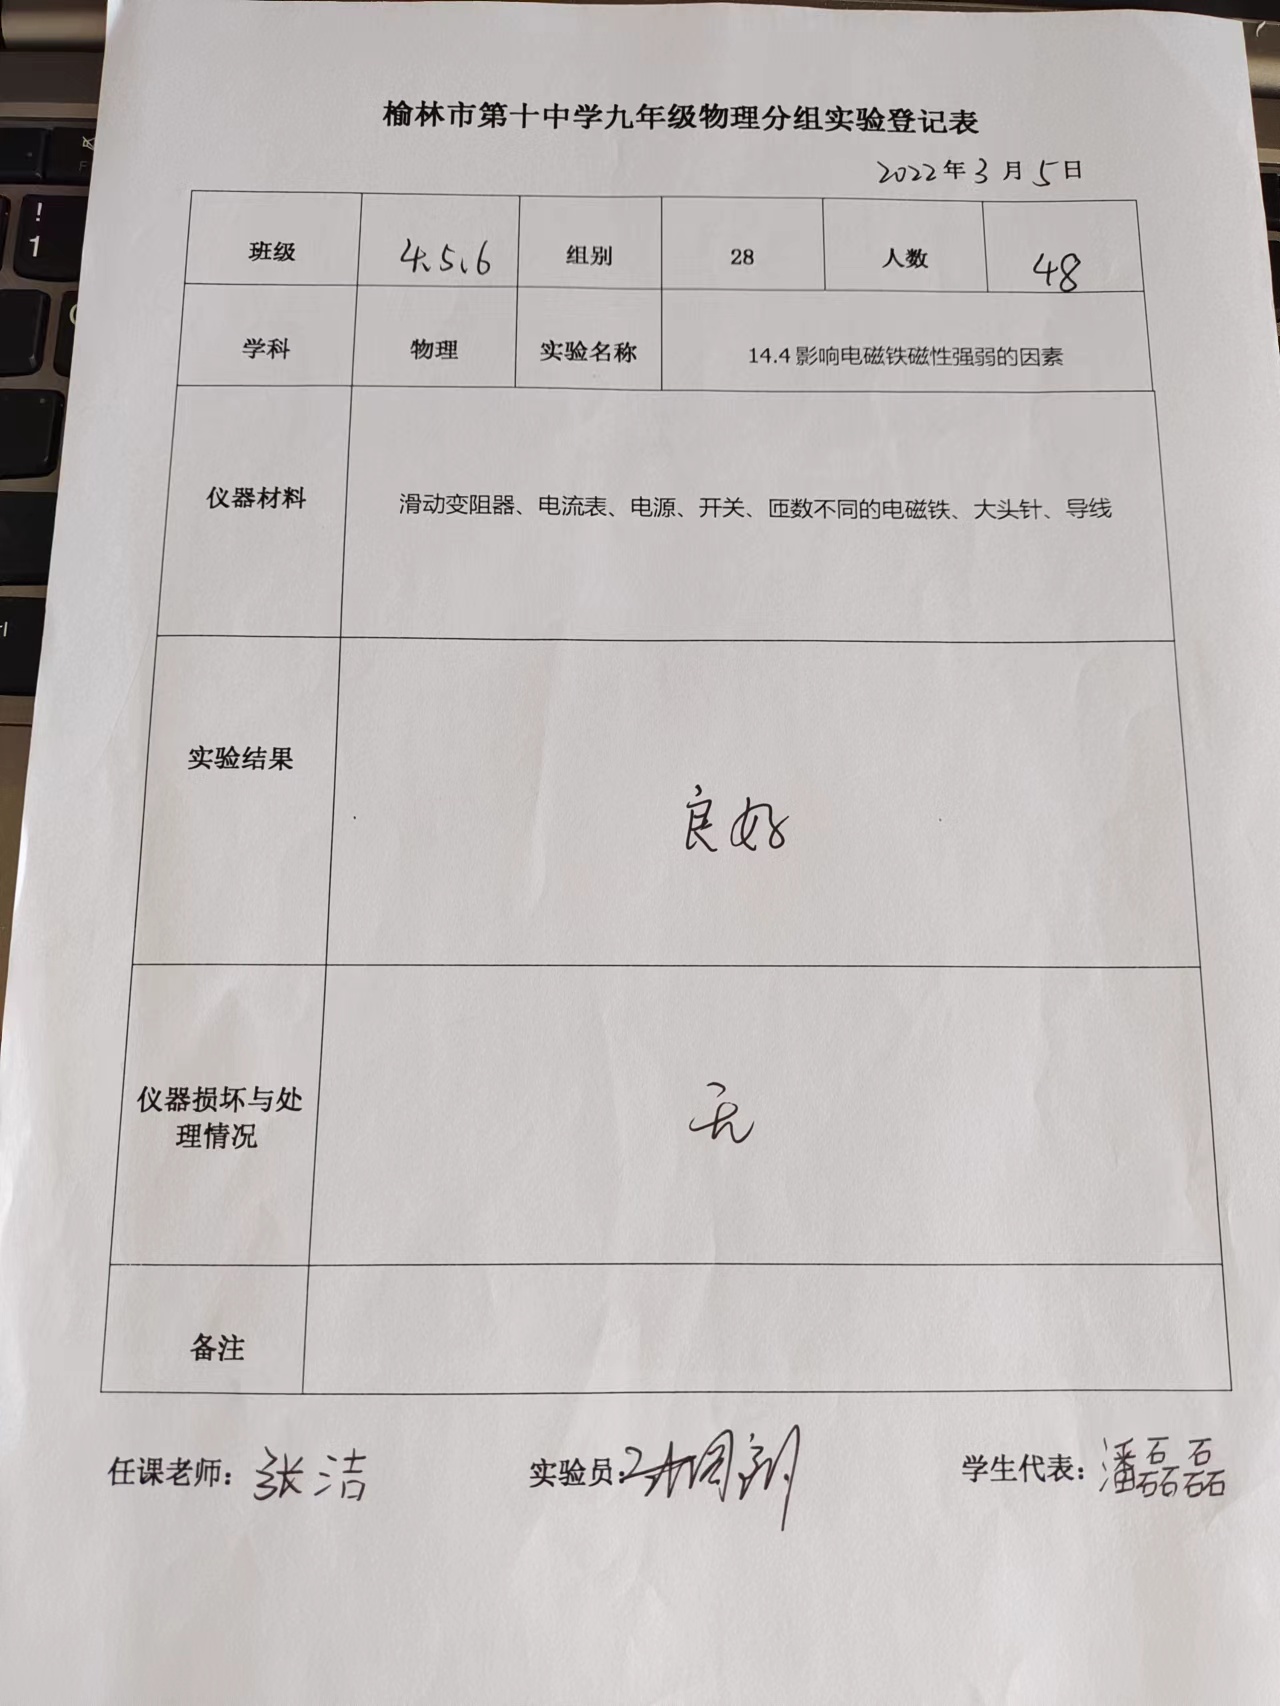 榆林市第十中学九年级物理分组实验登记表
2022年3月5日
班级 4、5、6 组别 28 人数 48
学科 物理 实验名称 14.4影响电磁铁磁性强弱的因素
仪器材料 滑动变阻器、电流表、电源、开关、匝数不同的电磁铁、大头针、导线
实验结果 良好
仪器损坏与处
理情况 无
备注
任课老师：张洁 实验员： 学生代表：潘磊磊
! 1